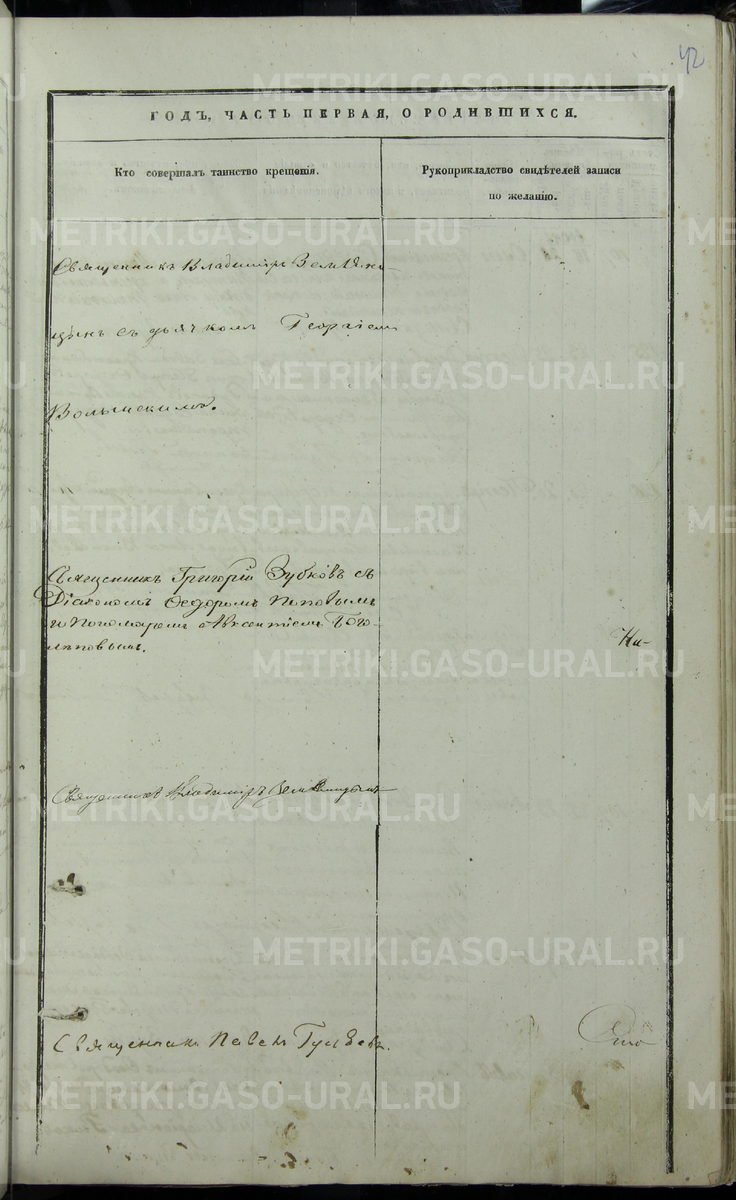 42
ГОДЪ, ЧАСТЬ ПЕРВАЯ, О РОДИВШИХСЯ.
Кто совершалъ таинство крещенія.
Рукоприкладство свидѣтелей записи
по желанію.
Священникъ Владиміръ Земляни-
цынъ съ дьячкомъ Георгіемъ
Волынскимъ.
Священникъ Григорій Зубковъ съ
Діакономъ Ѳедоромъ Поповымъ
и Пономаремъ Авксентіемъ Бого-
лѣповымъ.
Ни-
Священникъ Владиміръ Земляницынъ
Священникъ Павелъ Гуляевъ.
METRIKI.GASO-URAL.RU